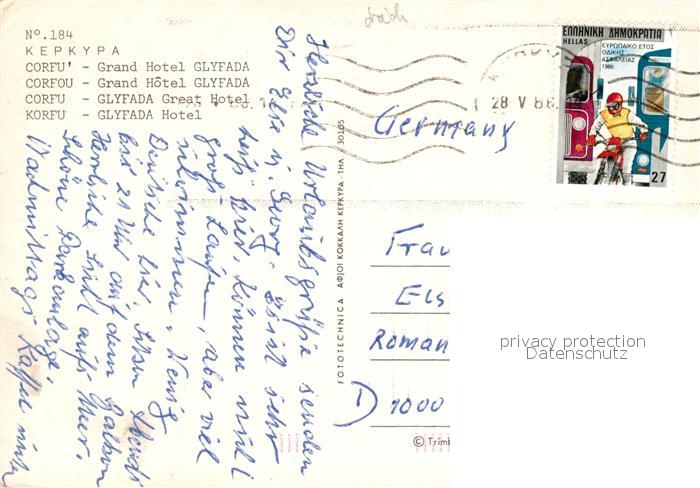 Nº.184
ΚΕΡΚΥΡΑ
CORFU' - Grand Hotel GLYFADA
CORFOU - Grand Hôtel GLYFADA
CORFU - GLYFADA Great Hotel
KORFU - GLYFADA Hotel
Herzliche Urlaubsgrüße senden
Dir Else u. Georg. Es ist sehr
heiß hier, können nicht
groß Laufen, aber viel
schwimmen. Wenig
Deutsche hier. Sitzen Abends
bis 21 Uhr auf dem Balkon
Herrliche Sicht aufs Meer.
Schöne Parkanlage.
Nachmittags Kaffee
FOTOTECHNICA ΑΦ|ΟΙ ΚΟΚΚΑΛΗ ΚΕΡΚΥΡΑ · ΤΗΛ. 30105
ΕΛΛΗΝΙΚΗ ΔΗΜΟΚΡΑΤΙΑ
HELLAS
ΕΥΡΩΠΑΙΚΟ ΕΤΟΣ
ΟΔΙΚΗΣ
ΑΣΦΑΛΕΙΑΣ
1986
27
28 V 86
Germany
Frau
Els
Roman
D 1000
privacy protection
Datenschutz
© Trimb